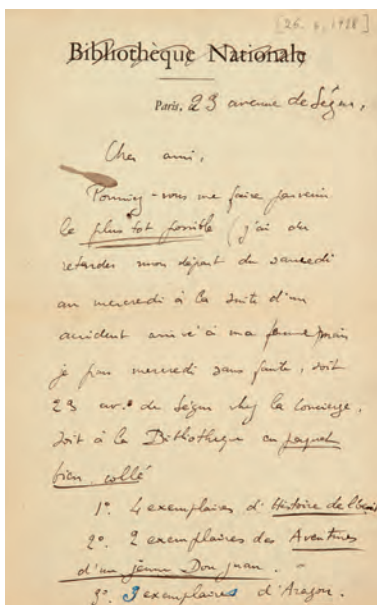 [26. 6, 1928]
Bibliothèque Nationale
Paris, 23 avenue de Ségur,
Cher ami,
Pourriez-vous me faire parvenir
le plus tôt possible (j'ai du
retarder mon départ du samedi
au mercredi à la suite d'un
accident arrivé à ma femme mais
je pars mercredi sans faute, soit
23 av. de Ségur chez la concierge,
soit à la Bibliothèque en paquet
bien collé
1º. 4 exemplaires d'Histoire de l'
2º. 2 exemplaires des Aventures
d'un jeune Don Juan.
3º. 3 exemplaires d'Aragon.